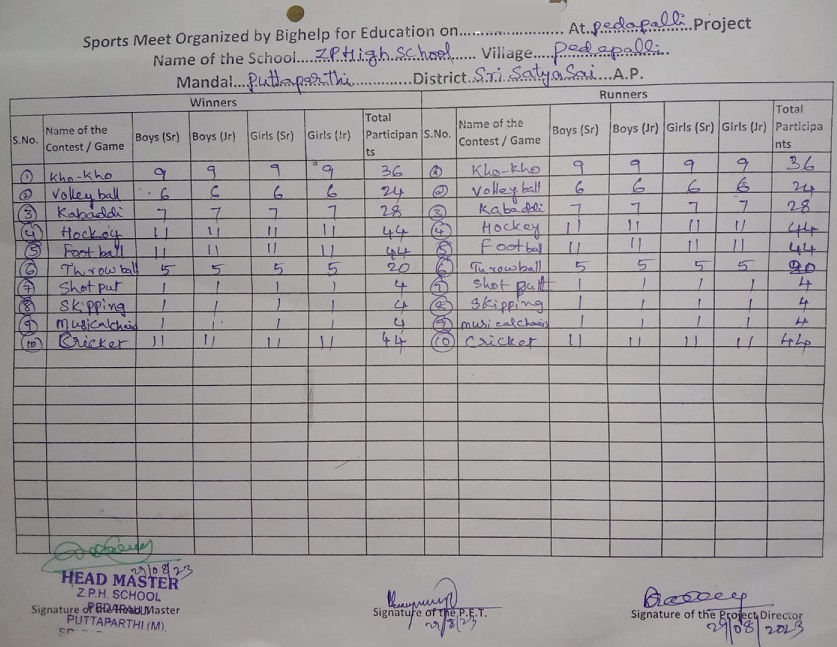 Sports Meet Organized by Bighelp for Education on........................ At. pedapalli Project
Name of the School.... Z.P High School ...... Village.... Pedapalli.
Mandal... Puttaparthi ............District. Sri Satya Sai ...A.P.
Winners Runners
S.No. Name of the Contest / Game Boys (Sr) Boys (Jr) Girls (Sr) Girls (Jr) Total Participants S.No. Name of the Contest / Game Boys (Sr) Boys (Jr) Girls (Sr) Girls (Jr) Total Participants
1 Kho-kho 9 9 9 9 36 1 Kho-kho 9 9 9 9 36
2 Volleyball 6 6 6 6 24 2 Volleyball 6 6 6 6 24
3 Kabaddi 7 7 7 7 28 3 Kabaddi 7 7 7 7 28
4 Hockey 11 11 11 11 44 4 Hockey 11 11 11 11 44
5 Football 11 11 11 11 44 5 Footbal 11 11 11 11 44
6 Throwball 5 5 5 5 20 6 Throwball 5 5 5 5 20
7 Shot put 1 1 1 1 4 7 Shot putt 1 1 1 1 4
8 Skipping 1 1 1 1 4 8 Skipping 1 1 1 1 4
9 Musicalchair 1 1 1 1 4 9 musicalchair 1 1 1 1 4
10 Cricket 11 11 11 11 44 10 Cricket 11 11 11 11 44
29/08/23
HEAD MASTER
Z.P.H. SCHOOL
PEDAPALLI
Signature of the Head Master
PUTTAPARTHI (M).
Signature of the P.E.T.
29/8/23
Signature of the Project Director
29/08/2023